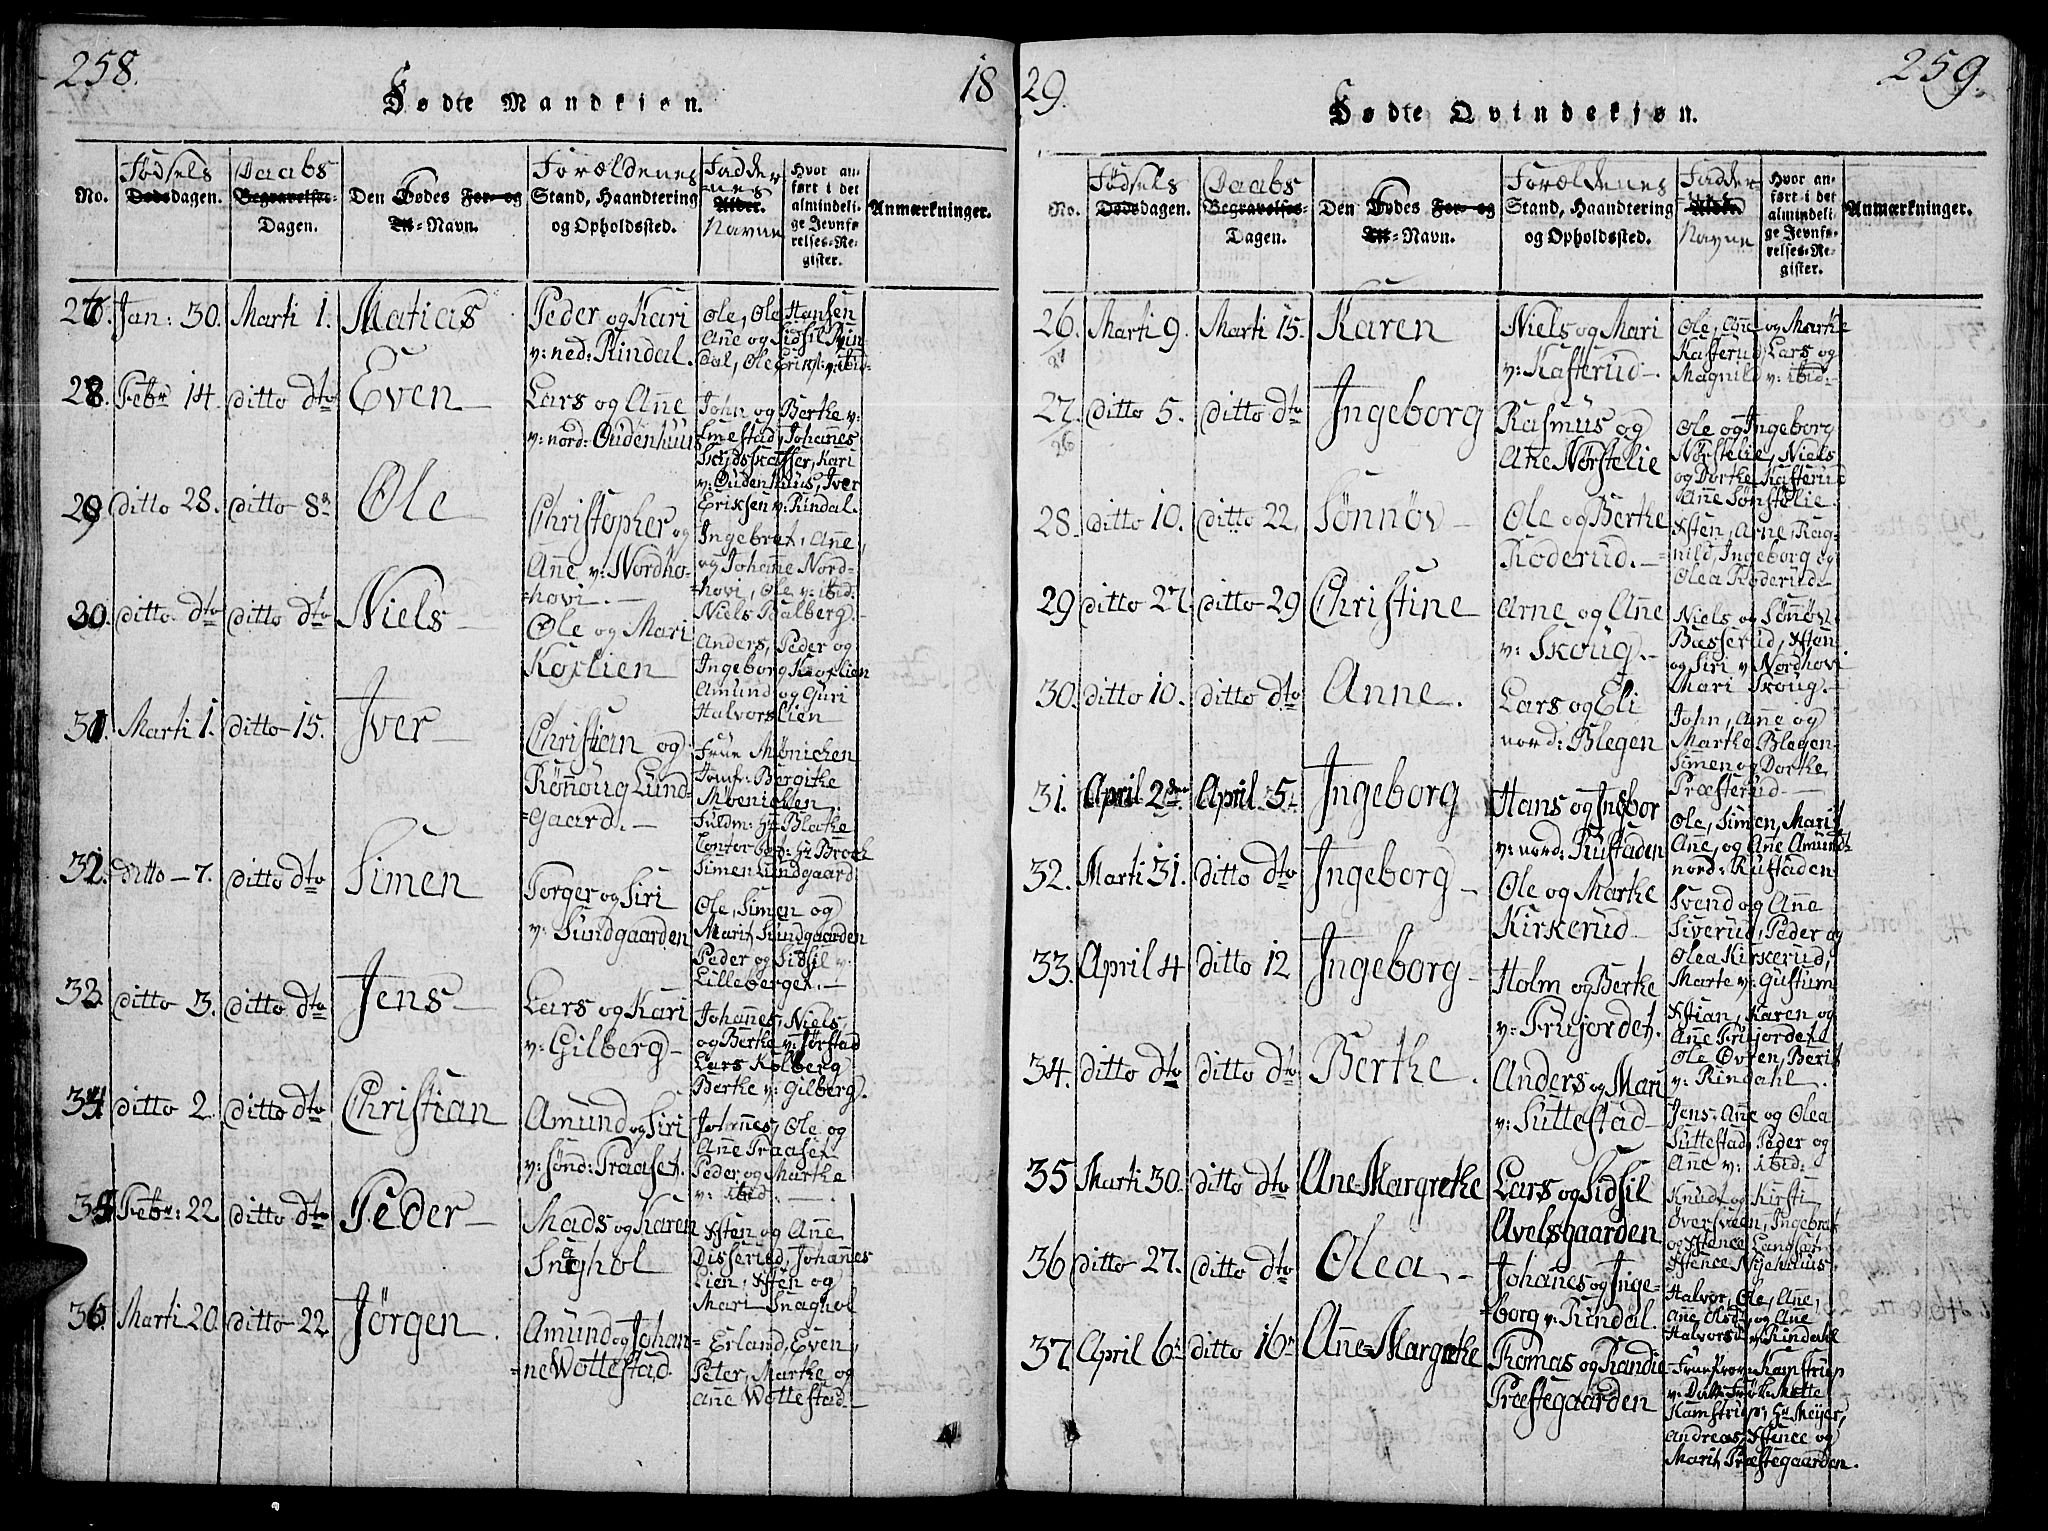 258.
18
Fødte Mandkiøn.
No.
Fødsels
Dødsdagen.
Daabs
Begravelses-
Dagen.
Den Dødes For- og
Til-Navn.
Forældenes
Stand, Haandtering
og Opholdssted.
Fadder
=nes
Alder.
Navne
Hvor an-
ført i det
almindeli-
ge Jevnfø-
relses-Re-
gister.
Anmærkninger.
Jan: 30. Marti 1. Matias
Peder og Kari
v: ned: Rindal.
Ole, Ole Hansen
Ane og Sidsil Rin-
dal, Ole Eriks: v: ibid:
28. Febr 14. ditto dto Even
Lars og Añe
v: nord: Oudenhuus
John og Berthe v:
Smestad, Johañes
Skydsskaffer, Kari
v: Oudenhuus, Iver
Eriksen v: Rindal.
29 ditto 28. ditto 8de Ole
Christopher og
Añe v: Nordho-
=hovi.
Ingebret, Añe,
og Johañe Nord=
hovi, Ole v: ibid:
Niels Balberg.
30. ditto dto ditto dto Niels
Ole og Mari
Koxlien
Anders, Peder og
Ingeborg Koxlien
Amund og Guri
Halvorslien
31 Marti 1. ditto 15. Iver
Christian og
Rõnnoug Lund=
=gaard.
Frue Mønichen
Jomf: Bergithe
Møenichen,
Fuldm: Hr Blatke
Simen Lundgaard
32. ditto 7. ditto dto Simen
Torger og Siri
v: Sundgaarden
Ole, Simen og
Marit Sundgaarden
Peder og Sidsil v:
Lilleberget.
33. ditto 3. ditto dto Jens
Lars og Kari
v: Gilberg
Johañes, Niels,
og Berthe v: Jørstad
Lars Kolberg
Berthe v: Gilberg.
34 ditto 2. ditto dto Christian
Amund og Siri
v: sønd: Traaset.
Johañes, Ole og
Añe Traaset.
Peder og Marthe
v: ibid:
Febr: 22 ditto dto Peder
Mads og Karen
Snaghol
Østen og Añe
Disserud, Johañes
Lien, Østen og
Mari Snaghol
36. Marti 20. ditto 22 Jørgen.
Amund og Johan=
=ne Wottestad.
Erland, Even,
Peter, Marthe og
Añe Wottestad.
29.
259.
Fødte Qvindekjøn.
No.
Fødsels
Dødsdagen.
Daabs
Begravelses-
Dagen.
Den Dødes For- og
Til-Navn.
Forældenes
Stand, Haandtering
og Opholdssted.
Fadder
Alder
Navne
Hvor an-
ført i det
almindeli-
ge Jevnfø-
relses-Re-
gister.
Anmærkninger.
26. Marti 9. Marti 15. Karen
Niels og Mari
v: Kafferud.
Ole, Añe og Marthe
Kafferud, Lars og
Magnild v: ibid:
27. ditto 5. ditto dto Ingeborg
26
Rasmus og
Añe Nørstelie
Ole og Ingeborg
Nørstelie, Niels
og Dorthe Kafferud
Añe Sønstelie.
28. ditto 10. ditto 22. Sønnøv
Ole og Berthe
Roderud.
Østen, Arne, Rag=
=nild, Ingeborg og
Olea Roderud.
29 ditto 27. ditto 29 Christine
Arne og Añe
v: Skoug.
Niels og Søñøv
Busserud, Østen
og Siri v: Nordhovi
Mari Skoug.
30. ditto 10. ditto dto Anne.
Lars og Eli
nord: Blegen
John, Añe og
Marthe Blegen-
Simen og Dorthe
Præsterud.
31. April 2den April 5. Ingeborg
Hans og Ingebor
v: nord: Rustaden
Ole, Simen, Marit
Ane, og Ane Amunds
nord: Rustaden
32. Marti 31. ditto dto Ingeborg
Ole og Marthe
Kirkerud
Svend og Ane
Siverud, Peder og
Olea Kirkerud,
Marte v: Gustum
33. April 4 ditto 12 Ingeborg
Holm og Berthe
v: Frujordet.
Østian, Karen og
Añe Frujordet
Ole Øvren, Berit
v: Rindahl.
34. ditto dto ditto dto Berthe.
Anders og Mari
v: Suttestad
Jens, Añe og Olea
Suttestad, Peder og
Añe v: ibid:
35 Marti 30. ditto dto Ane Margrethe
Lars og Sidsil
Avelsgaarden
Knud og Kirsti
Øversveen, Ingebret
36 ditto 27. ditto dto Olea.
Johañes og Inge=
=borg v: Rindal.
Halvor, Ole, Añe,
Añe Olsd: og Añe
Halvorsd: v: Rindahl
37. April 6te ditto 16de Añe Margrethe
Thomas og Randie
Præstegaarden
Frue Prov: Kamstrup
Kamstrup, Hr Meyer,
Andreas, Østence og
Marit Præstegaarden.